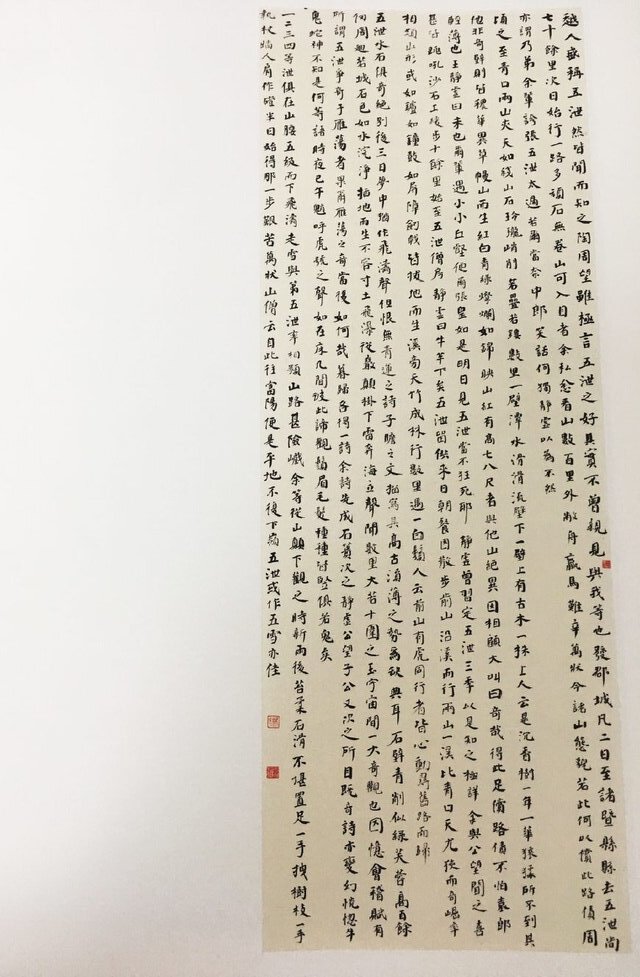 越人盛稱五泄然皆聞而知之陶周望雖極言五泄之好其實不曾親見與我等也發郡城凡二日至諸暨縣縣去五泄尚
七十餘里次日始行一路多頑石無卷山可入目者余私念看山數百里外敝舟羸馬艱辛萬狀今諸山態貌若此何以償此路債周
亦謂乃弟余輩誇張五泄太過若爾當奈中郎笑話何獨靜虛以為不然
頃之至青口兩山夾天如綫山石玲瓏峭削若疊若鏤數里一壁潭水滑滑流壁下一壁上有古木一株土人云是沉香樹一年一華猿猱所不到其
他非奇壁則皆穠華異草幔山而生紅白青綠燦爛如錦映山紅有高七八尺者與他山絕異因相顧大叫曰奇哉得此足償路債不怕袁郎
輕薄也王靜虛曰未也爾輩遇小小丘壑便爾張皇如是明日見五泄當不狂死耶靜虛曾習定五泄三年以是知之極詳余與公望聞之喜
甚皆跳吼沙石上緩步十餘里始至五泄僧房靜虛曰牛羊下矣五泄留供來日朝餐因散步前山沿溪而行兩山一溪比青口天尤狹而奇崛率
相類山形或如爐如鐘鼓如屏障劍戟皆拔地而生溪旁天竹成林行數里遇一白鬚人云前山有虎同行者皆心動尋舊路而歸
五泄水石俱奇絕別後三日夢中猶作飛濤聲但恨無青蓮之詩子瞻之文描寫其高古濆薄之勢為缺典耳石壁青削似綠芙蓉高百餘
仞周迴若城石色如水浣淨插地而生不容寸土飛瀑從巖巔掛下雷奔海立聲聞數里大若十圍之玉宇宙間一大奇觀也因憶會稽賦有
所謂五泄爭奇于雁蕩者果爾雁蕩之奇當復如何哉暮歸各得一詩余詩先成石簣次之靜虛公望子公又次之所目既奇詩亦變幻恍惚牛
鬼蛇神不知是何等語時夜已午魈呼虎號之聲如在床几間彼此諦觀鬚眉毛髮種種皆豎俱若鬼矣
一二三四等泄俱在山腰五級而下飛濤走雪與第五泄率相類山路甚險巇余等從山巔下觀之時新雨後苔柔石滑不堪置足一手拽樹枝一手
執杖踏人肩作磴半日始得那一步艱苦萬狀山僧云自此往富陽便是平地不復下嶺五泄或作五雪亦佳